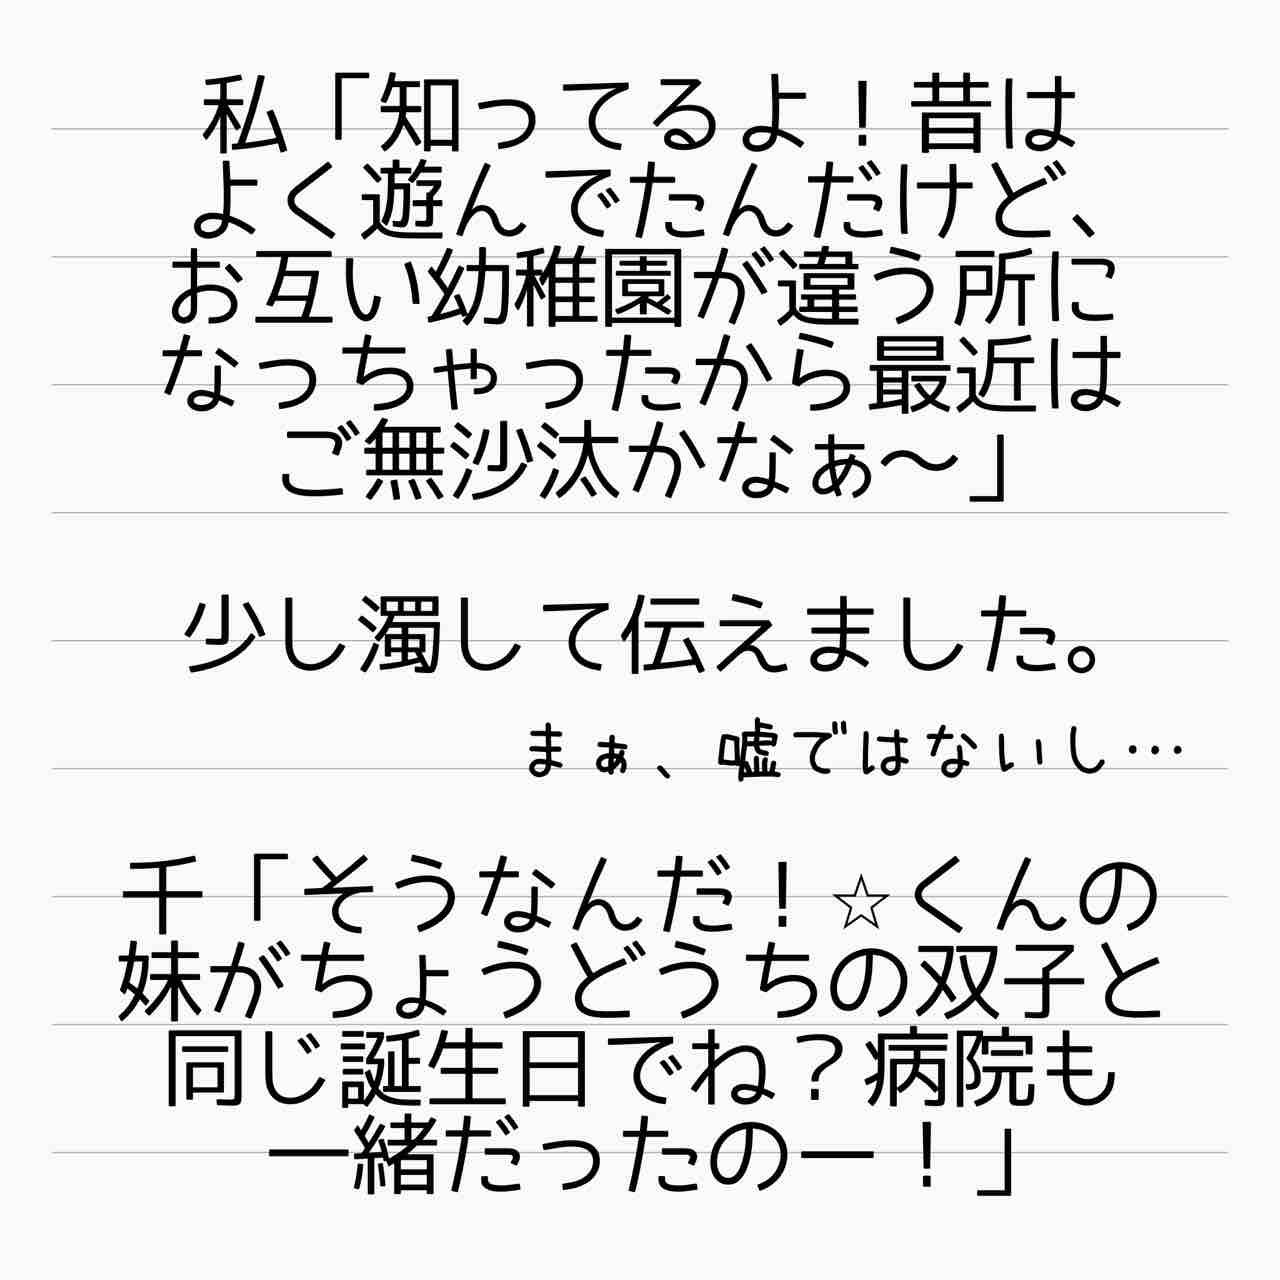 私「知ってるよ！昔は
よく遊んでたんだけど、
お互い幼稚園が違う所に
なっちゃったから最近は
ご無沙汰かなぁ〜」
少し濁して伝えました。
まぁ、嘘ではないし…
千「そうなんだ！☆くんの
妹がちょうどうちの双子と
同じ誕生日でね？病院も
一緒だったのー！」